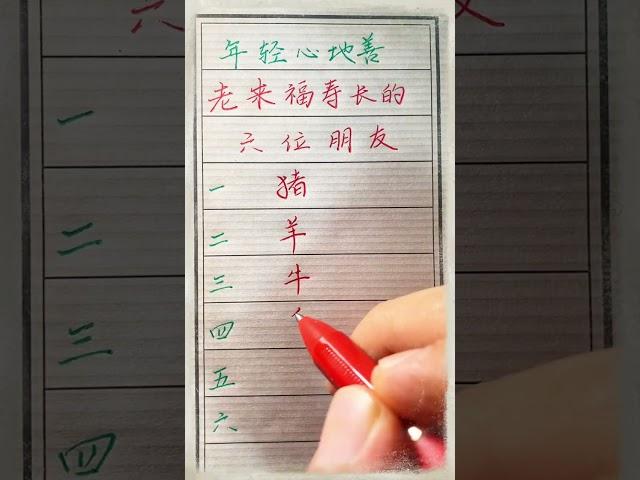 年轻心地善
老来福寿长的
六位朋友
一 猪
二 羊
三 牛
四
五
六